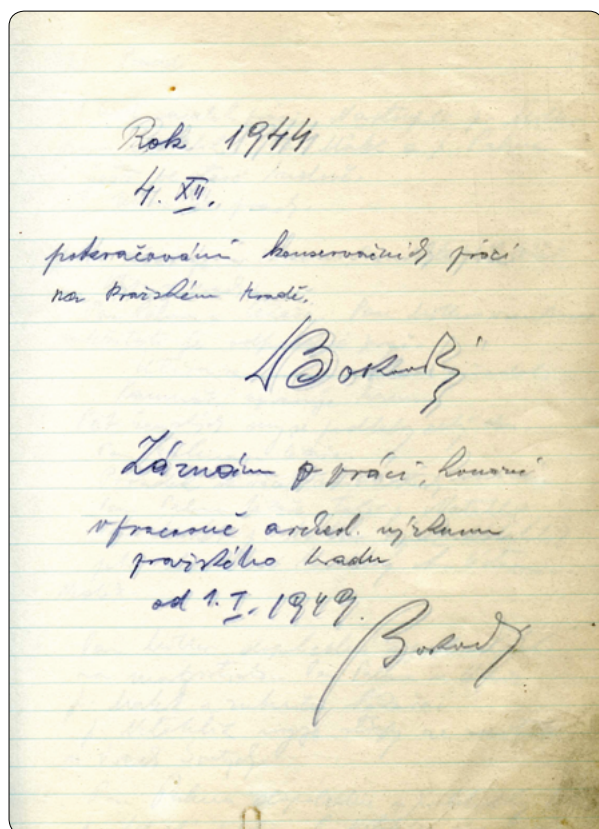 Rok 1944
4. XII.
pokračování konservačních prací
na Pražském hradě.
Borkovský
Záznam o práci, konané
v pracovně archeol. výzkumu
pražského hradu
od 1. I. 1949.
Borkovský